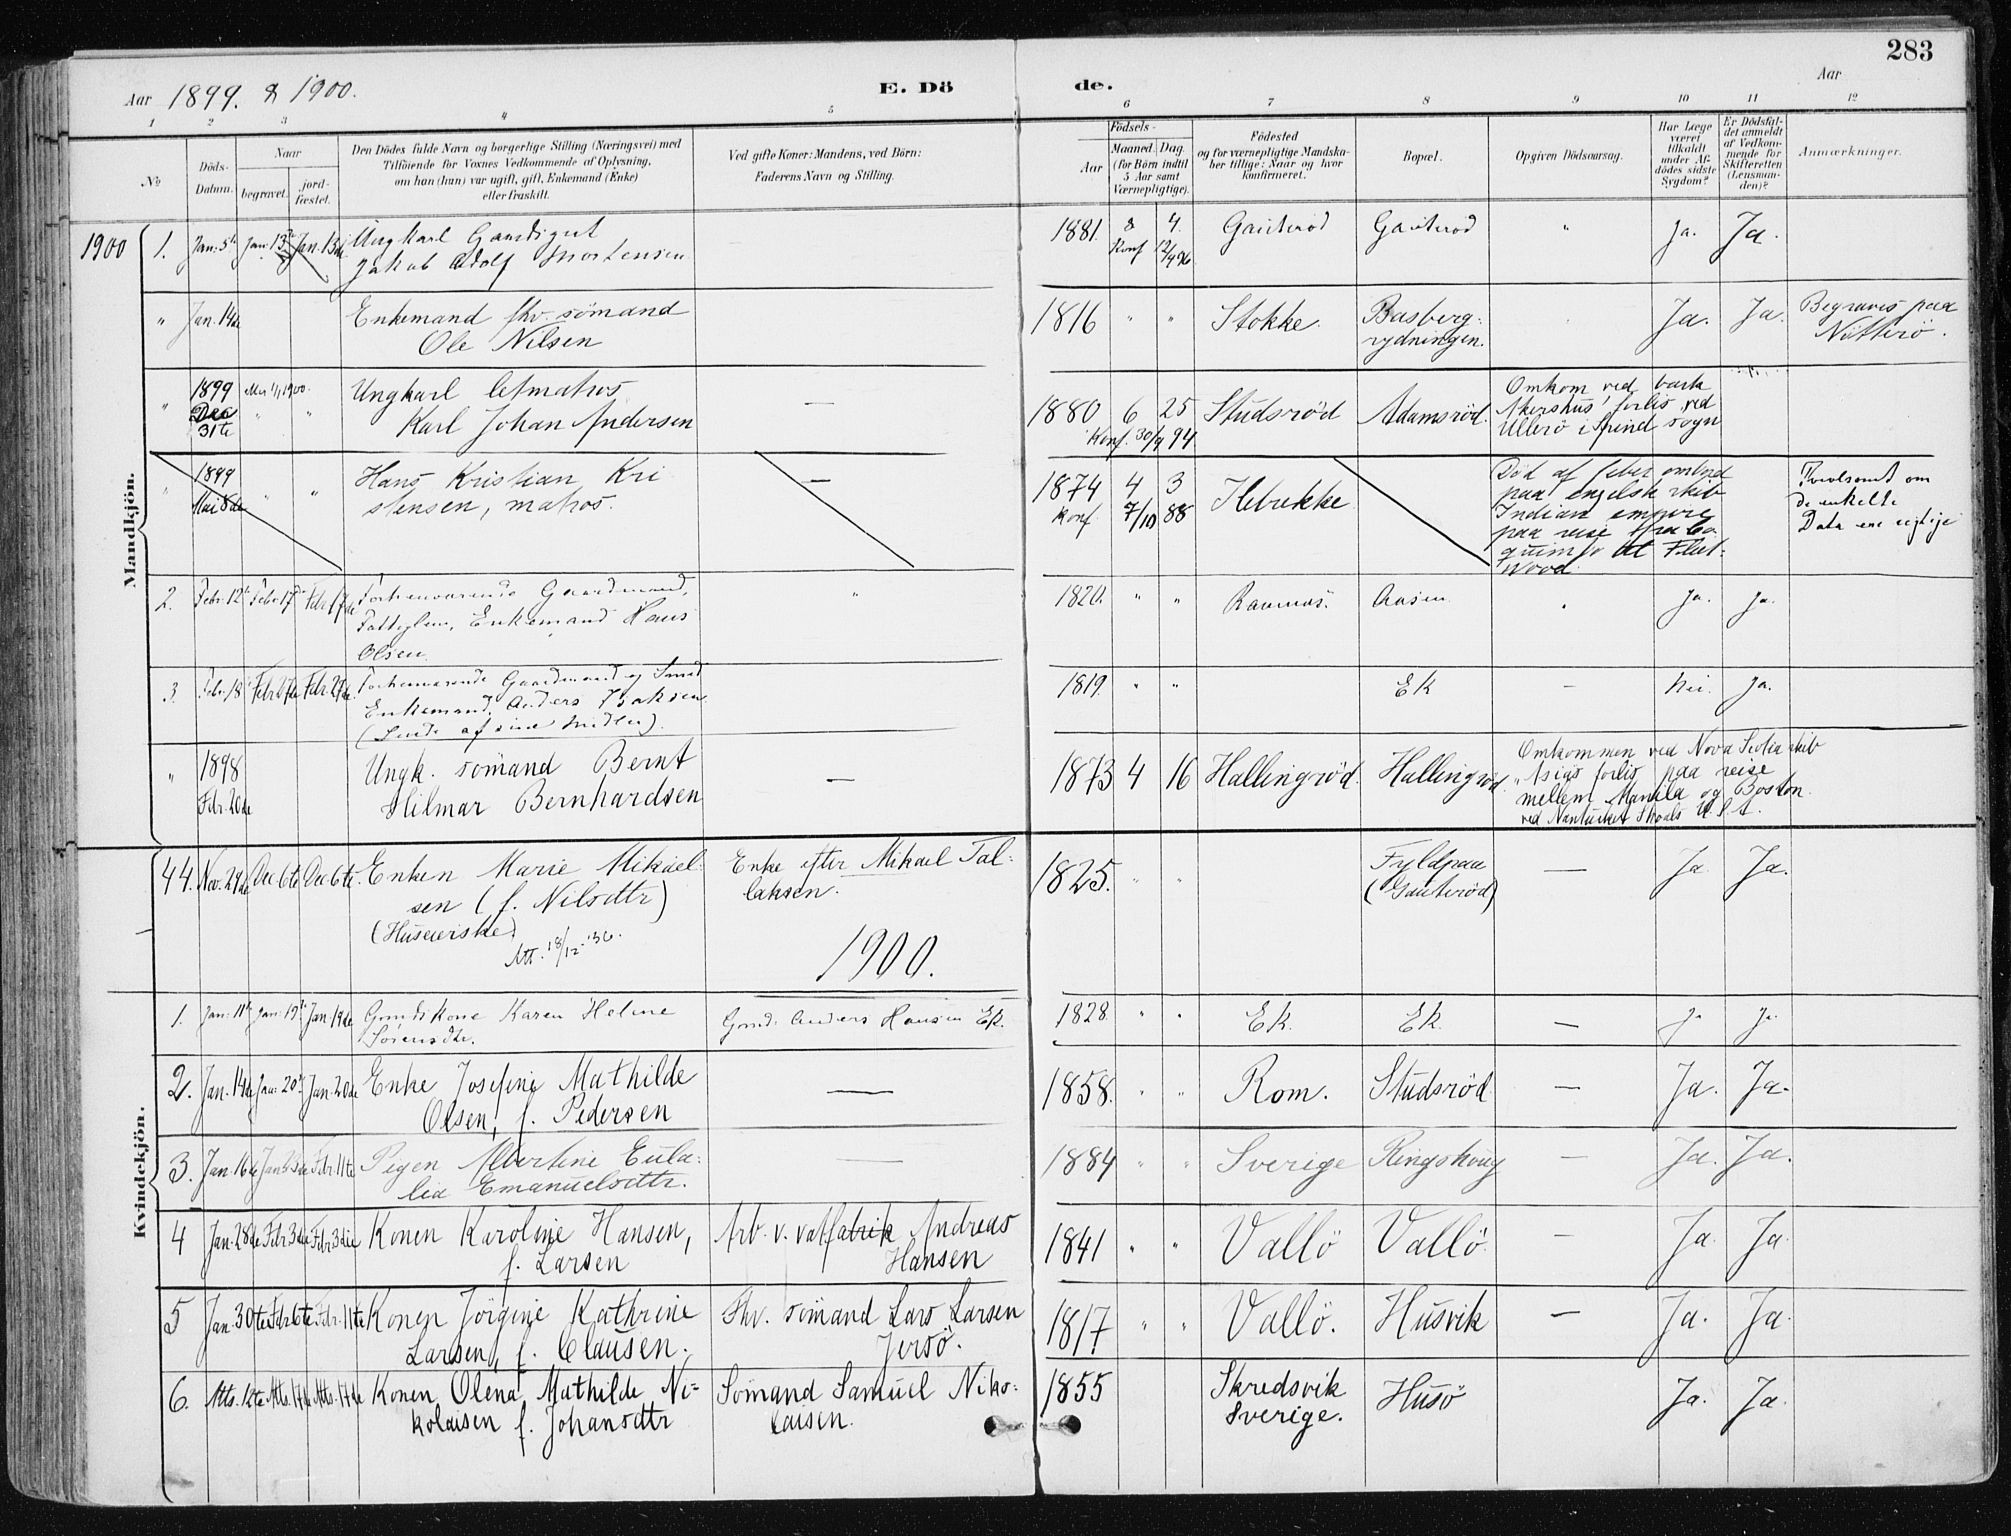 283
Aar 1899. & 1900.
E. Dö de.
Aar
1 2 3 4 5 6 7 8 9 10 11 12
No
Döds-Datum.
Naar
begravet.
jord-fæstet.
Den Dödes fulde Navn og borgerlige Stilling (Næringsvei) med
Tilföiende for Voxnes Vedkommende af Oplysning,
om han (hun) var ugift, gift, Enkemand (Enke)
eller fraskilt.
Ved gifte Koner: Mandens, ved Börn:
Faderens Navn og Stilling.
Födsels-
Aar
Maaned. Dag.
(for Börn indtil
5 Aar samt
Værnepligtige).
Födested
og for værnepligtige Mandska-
ber tillige: Naar og hvor
konfirmeret.
Bopæl.
Opgiven Dödsaarsag.
Har Læge
været
tilkaldt
under Af-
dödes sidste
Sygdom?
Er Dödsfal-
det anmeldt
af Vedkom-
mende for
Skifteretten
(Lensman-
den)?
Anmærkninger.
Mandkjön.
1900 1. Jan. 5te Jan. 13de Jan. 13de Ungkarl Gaardgut 1881. 8 4. Gauterød Gauterød " Ja. Ja.
Jakob Adolf Mortensen Konf 12/4 96
" Jan. 14de Enkemand fhv. sömand 1816 " " Stokke. Basberg- Ja. Ja. Begraves paa
Ole Nilsen rydningen. Nötterö.
" 1899 1900. Ungkarl letmatros — 1880 6 25 Studsrød Adamsrød. Omkom ved bark
Dec 31te " " Karl Johan Andersen Konf. 30/9 94 Akershus' forlis ved
Ullerö i Spind sogn
" 1899 " " Hans Kristian Kri — 1874 4 3 Ilebrekke Död af feber ombord Tvivlsomt om
Mai 8de stensen, matros. Konf. 7/10 88 paa engelsk skib de enkelte
Indian empire Data ere rigtige
paa reise fra Co-
quimbo til Fleet-
wood.
2. Febr. 12te Febr. 17de Febr. 17de Forhenværende Gaardmand, " 1820. " " Ramnæs. Aasen. Ja. Ja.
Fattiglem, Enkemand Hans
Olsen.
3. Febr. 18 Febr. 27de Febr. 27de Forhenværende Gaardmand og Smed 1819. " " Ek — Nei. Ja.
Enkemand. Anders Isaksen
(Levde af sine Midler).
" 1898 Ungk. sömand Bernt — 1873 4 16 Hallingrød. Hallingrød. Omkommen ved Nova Scotia skib
Febr. 20de Hilmar Bernhardsen "Asias forlis paa reise
mellem Manila og Boston
ved Nantucket Shoals U.S.A.
Kvindekjön.
44. Nov. 24de Dec 6te Dec 6te. Enken Marie Mikael- Enke efter Mikael Tal- 1825. " " Fyldpaa — Ja Ja.
sen (f. Nilsdtr) laksen. (Gauterød)
(Huseierske)
Att. 18/12-'36.
1900.
1. Jan. 11te Jan. 19de Jan 19de Grmdskone Karen Helene Grmd. Anders Hansen Ek. 1828. " " Ek. Ek. — Ja Ja.
Sörensdtr.
2. Jan. 14de Jan. 20de Jan. 20de Enke Josefine Mathilde — 1858. " " Rom. Studsrød — Ja. Ja.
Olsen, f. Pedersen
3. Jan. 16de Jan 23de Febr. 11te Pigen Albertine Eula- — 1884 " " Sverige Ringshoug — Ja. Ja.
lia Emanuelsdtr.
4 Jan. 28de Febr 3die Febr 3die Konen Karoline Hansen, Arb. v. valfabrik Andreas 1841 " " Vallö Vallö. — Ja. Ja.
f. Larsen Hansen
5 Jan. 30te Febr 6te Febr. 11te Konen Jörgine Kathrine Fhv. sömand Lars Larsen 1817 " " Vallö. Husvik — Ja. Ja.
Larsen, f. Clausen. Jersö.
6. Mts. 12te Mts. 17de Mts. 17de Konen Olena Mathilde Ni- Sömand Samuel Niko- 1855 Skredsvik Husö Ja. Ja.
kolaisen f. Johansdtr laisen. Sverige.